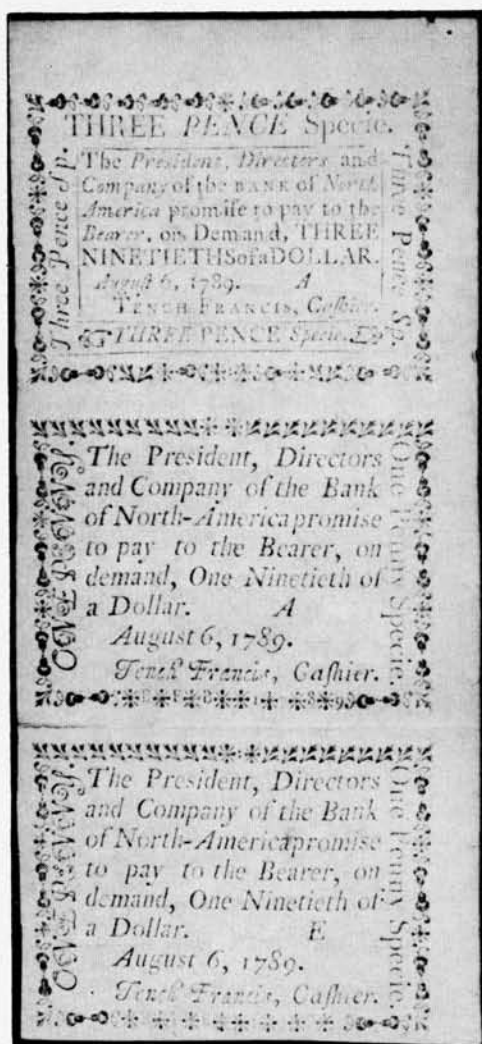 THREE PENCE Specie.
Three Pence Sp.
The President, Directors and
Company of the BANK of North
America promiſe to pay to the
Bearer, on Demand, THREE
NINETIETHS of a DOLLAR.
August 6, 1789. A
TENCH FRANCIS, Caſhier.
THREE PENCE Specie.
Three Pence Sp.
ONE PENNY.
The President, Directors
and Company of the Bank
of North-America promise
to pay to the Bearer, on
demand, One Ninetieth of
a Dollar. A
August 6, 1789.
Tench Francis, Caſhier.
One Penny Specie.
ONE PENNY.
The President, Directors
and Company of the Bank
of North-America promise
to pay to the Bearer, on
demand, One Ninetieth of
a Dollar. E
August 6, 1789.
Tench Francis, Caſhier.
One Penny Specie.